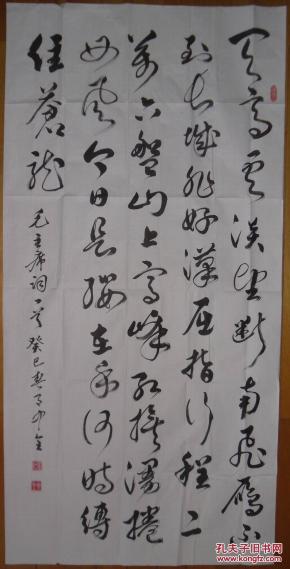 天高云淡望断南飞雁不
到长城非好漢屈指行程二
萬六盤山上高峰红旗漫捲
西风今日长缨在手何时缚
住蒼龙
毛主席词一首 癸巳
孔夫子旧书网